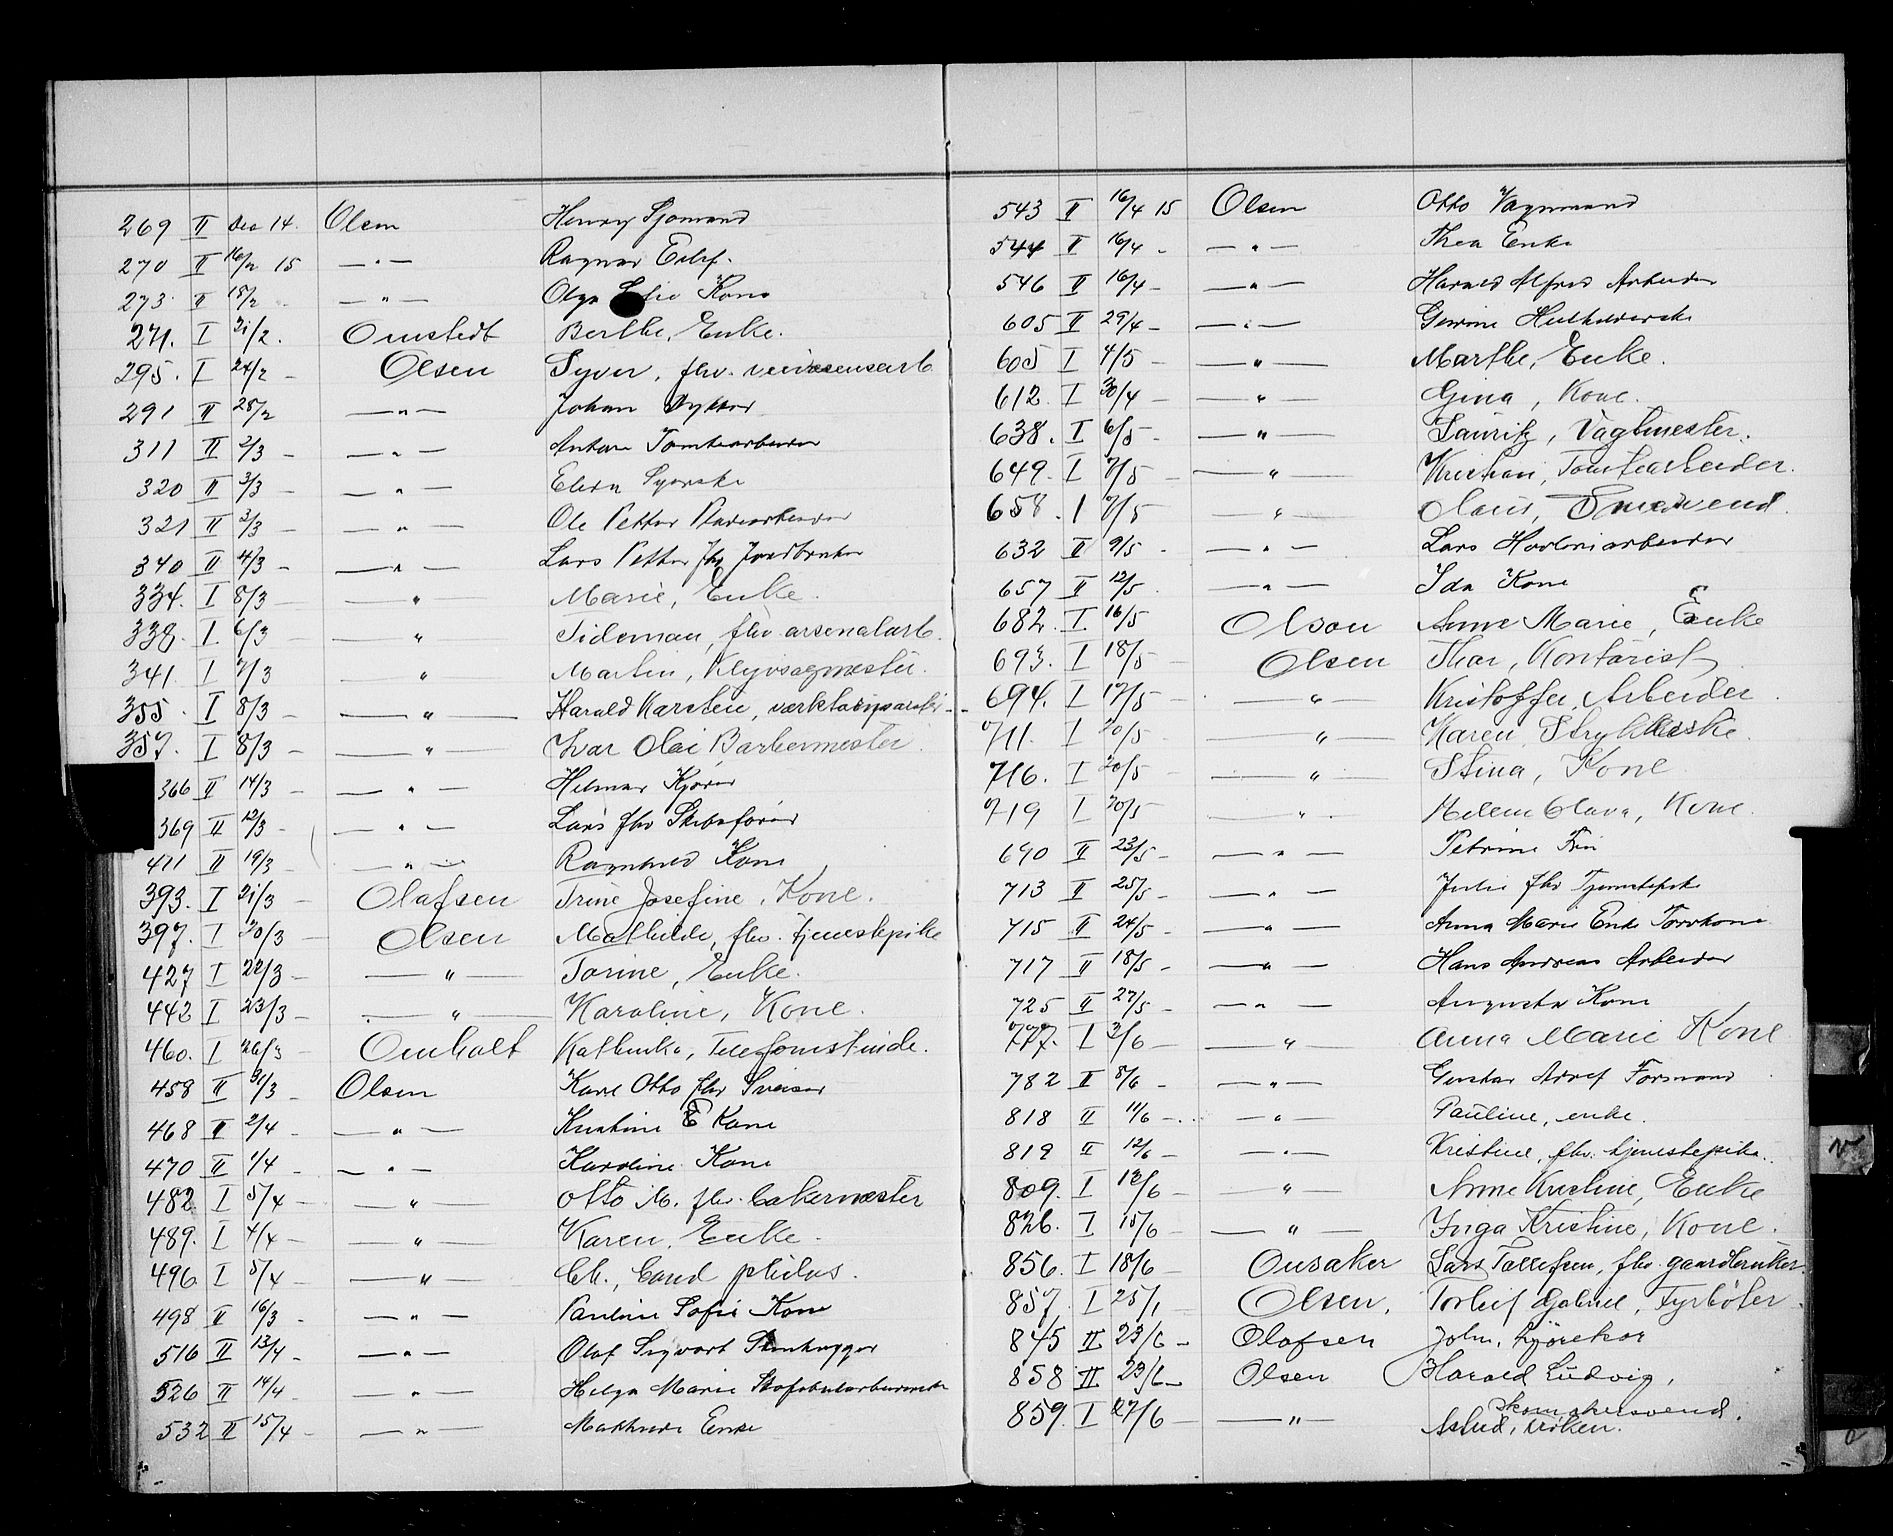 269 II Des 14. Olsen Henry Sjømand
270 II 16/2 15 — " — Ragnar Eilef.
273 II 18/2 — " — Olga Sofie Kone
271. I 21/2. Omstedt Berthe, Enke.
295. I 24/2 - Olsen Syver, fhv.
291 II 28/2 — " — Johan
311 II 2/3 - — " — Anton Tomtearbeider
320 II 3/3 - — " — Elisa Syerske
321 II 3/3 - — " — Ole Petter
340 II 4/3 - — " — Lars Petter fhv Jordbruker
334. I 8/3 — " — Marie, Enke.
338. I. 6/3 — " — Tideman, fhv. arsenalarb.
341. I 7/3 — " — Martin, Klyvsagmester.
355. I 8/3 - — " — Harald Karsten,
357. I 8/3 - — " — Ivar Olai, Barbermester.
366 II 14/3 - — " — Hilmar Kjører
369 II 12/3 - — " — Lars fhv Skibsfører
411 II 19/3 - — " — Ragnhild Kone
393. I 21/3 - Olafsen Trine Josefine, Kone.
397. I 20/3 - Olsen Mathilde, fhv. tjenestepike
427 I 22/3 - — " — Torine, Enke.
442 I 23/3 - — " — Karoline, Kone.
460. I 26/3 - Omholt Kathinka, Telefonistinde.
458 II 31/3 - Olsen Karl Otto fhv Sveiser
468 II 2/4 - — " — Kristine E Kone
470 II 1/4 - — " — Karoline Kone
482. I 5/4 - — " — Otto M. fhv. bakermester
489. I 4/4 - — " — Karen, Enke.
496 I 5/4 - — " — Ch., Cand philos.
498 II 16/3 - — " — Pauline Sofie Kone
516 II 13/4 - — " — Olaf Sigvart Stenhugger
526 II 14/4 - — " — Helga Marie
532 II 15/4 - — " — Mathilde Enke
543 II 16/4 15 Olsen Otto Vognmand
544 II 16/4 - — " — Thea Enke
546 II 16/4 - — " — Harald Alfred Arbeider
605 II 29/4 - — " —
605 I 4/5 - — " — Marthe, Enke.
612. I 30/4 - — " — Gina, Kone.
638. I 6/5 - — " — Lauritz, Vagtmester.
649. I 7/5 - — " — Kristian, Tomtearbeider.
658. I 7/5 - — " — Olaus,
632 II 9/5 - — " — Lars Havneriarbeider
657 II 12/5 . — " — Ida Kone
682. I. 16/5 Olson Anne Marie, Enke
693. I 18/5 Olsen Thor, Kontorist
694. I 17/5 - — " — Kristoffer, Arbeider.
711. I 20/5 - — " — Karen, Strykerske.
716. I 20/5 - — " — Stina, Kone
719 I 20/5 " Helene Olava, Kone.
690 II 23/5 - — " — Petrine Frü
713 II 25/5 - — " — Julie fhv Tjenestepike
715 II 24/5 - — " — Anna Marie Enke Torvkone
717 II 18/5 - — " — Hans Andreas Arbeider
725 II 27/5 - — " — Augusta Kone
777. I 3/6 - — " — Anna Marie Kone
782 II 8/6 - — " — Gustav Adolf Formand
818 II 11/6 - — " — Pauline, enke.
819 II 12/6 - — " — Kristine, fhv. tjenestepike.
809. I 12/6 - — " — Anne Kristine, Enke
826. I 15/6 — " — Inga Kristine, Kone.
856. I 18/6 - Onsaker Lars Tollefsen, fhv. gaardbruker
857. I 25/1 Olsen. Torleif Gabriel, Fyrbøter.
845 II 23/6 - Olafsen John, Kjørekar
858 II 23/6 - Olsen Harald Ludvig,
Skomakersvend.
859. I 27/6 - — " — Astrid, frøken.
N
O